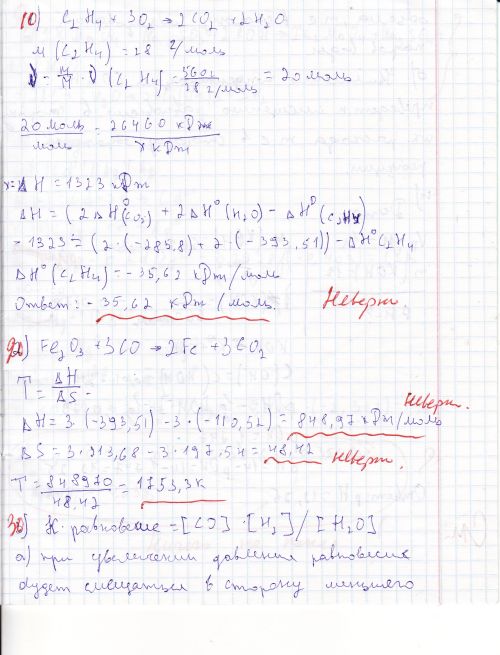 10) C2H4 + 3O2 → 2CO2 + 2H2O
M (C2H4) = 28 г/моль
ν = m/M ν (C2H4) = 560г/28 г/моль = 20 моль
20 моль/моль = 26460 кДж/x кДж
x = ΔH = 1323 кДж
ΔH = (2ΔH°(CO2) + 2ΔH°(H2O) - ΔH°(C2H4)
= 1323 = (2·(-285,8) + 2·(-393,51)) - ΔH°C2H4
ΔH°(C2H4) = -35,62 кДж/моль
Ответ: - 35,62 кДж/моль. Неверн.
) Fe2O3 + 3CO → 2Fe + 3CO2
T = ΔH/ΔS
Неверн.
ΔH = 3·(-393,51) - 3·(-110,52) = 848,97 кДж/моль
ΔS = 3·213,68 - 3·197,54 = 48,42 Неверн.
T = 848970/48,42 = 1753,3K
30) K равновесие = [CO]·[H2]/[H2O]
а) при увеличении давления равновесие
будет смещаться в сторону меньшего